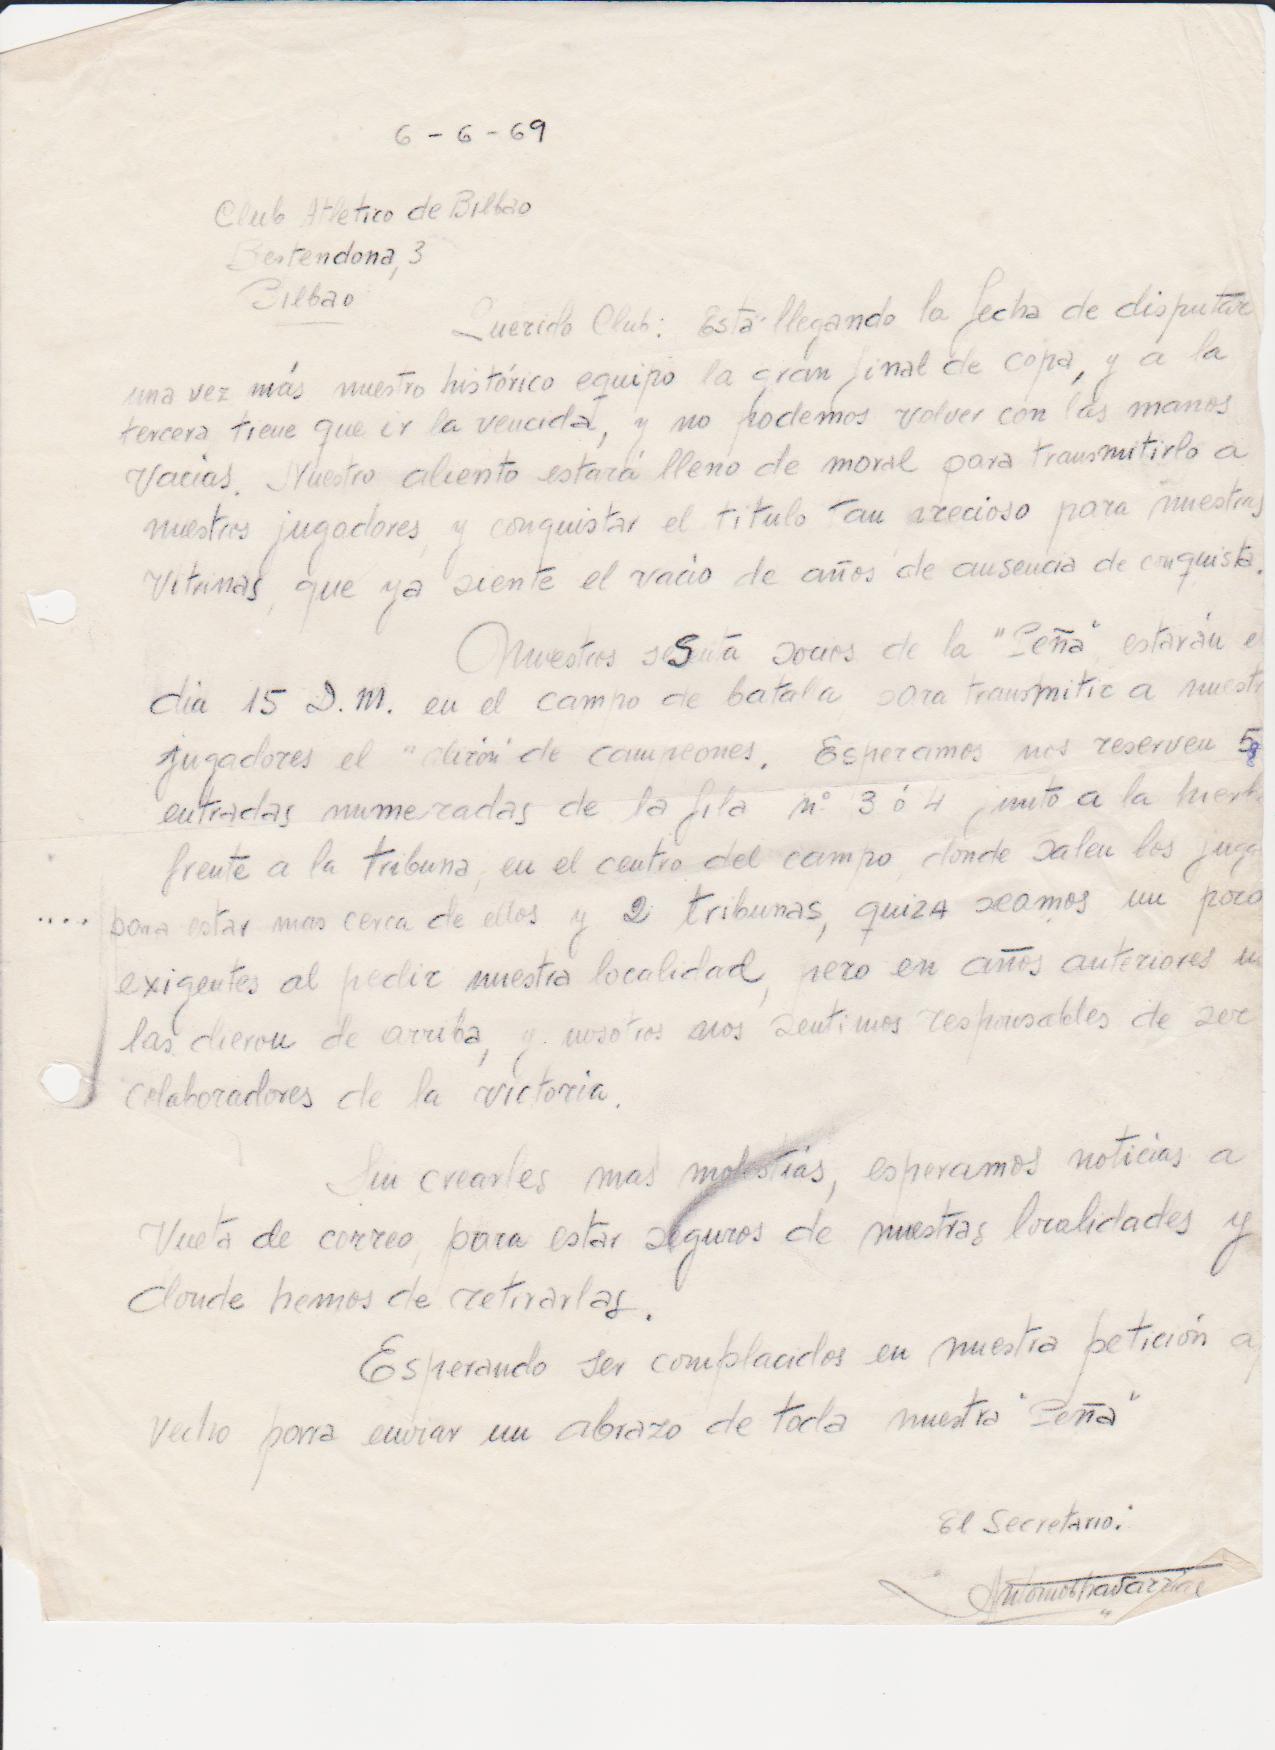 6 - 6 - 69
Club Atletico de Bilbao
Bertendona, 3
Bilbao
Querido Club: Está llegando la fecha de disputar
una vez más nuestro histórico equipo la gran final de copa, y a la
tercera tiene que ir la vencida, y no podemos volver con las manos
vacias. Nuestro aliento estará lleno de moral para transmitirlo a
nuestros jugadores, y conquistar el titulo tan precioso para nuestras
vitrinas, que ya siente el vacio de años de ausencia de conquista.
Nuestros sesenta socios de la "Peña" estarán e
dia 15 D.M. en el campo de batala, para transmitir a nuest
jugadores el "alirón" de campeones. Esperamos nos reserven 58
entradas numeradas de la fila nº 3 ó 4 junto a la hierb
frente a la tribuna, en el centro del campo, donde salen los juga
.... para estar mas cerca de ellos y 2 tribunas, quizá seamos un poco
exigentes al pedir nuestra localidad, pero en años anteriores
las dieron de arriba, y nosotros nos sentimos responsables de ser
colaboradores de la victoria.
Sin crearles mas molestias, esperamos noticias a
vueta de correo, para estar seguros de nuestras localidades y
donde hemos de retirarlas.
Esperando ser complacidos en nuestra petición ap
vecho para enviar un abrazo de toda nuestra "Peña"
El Secretario: